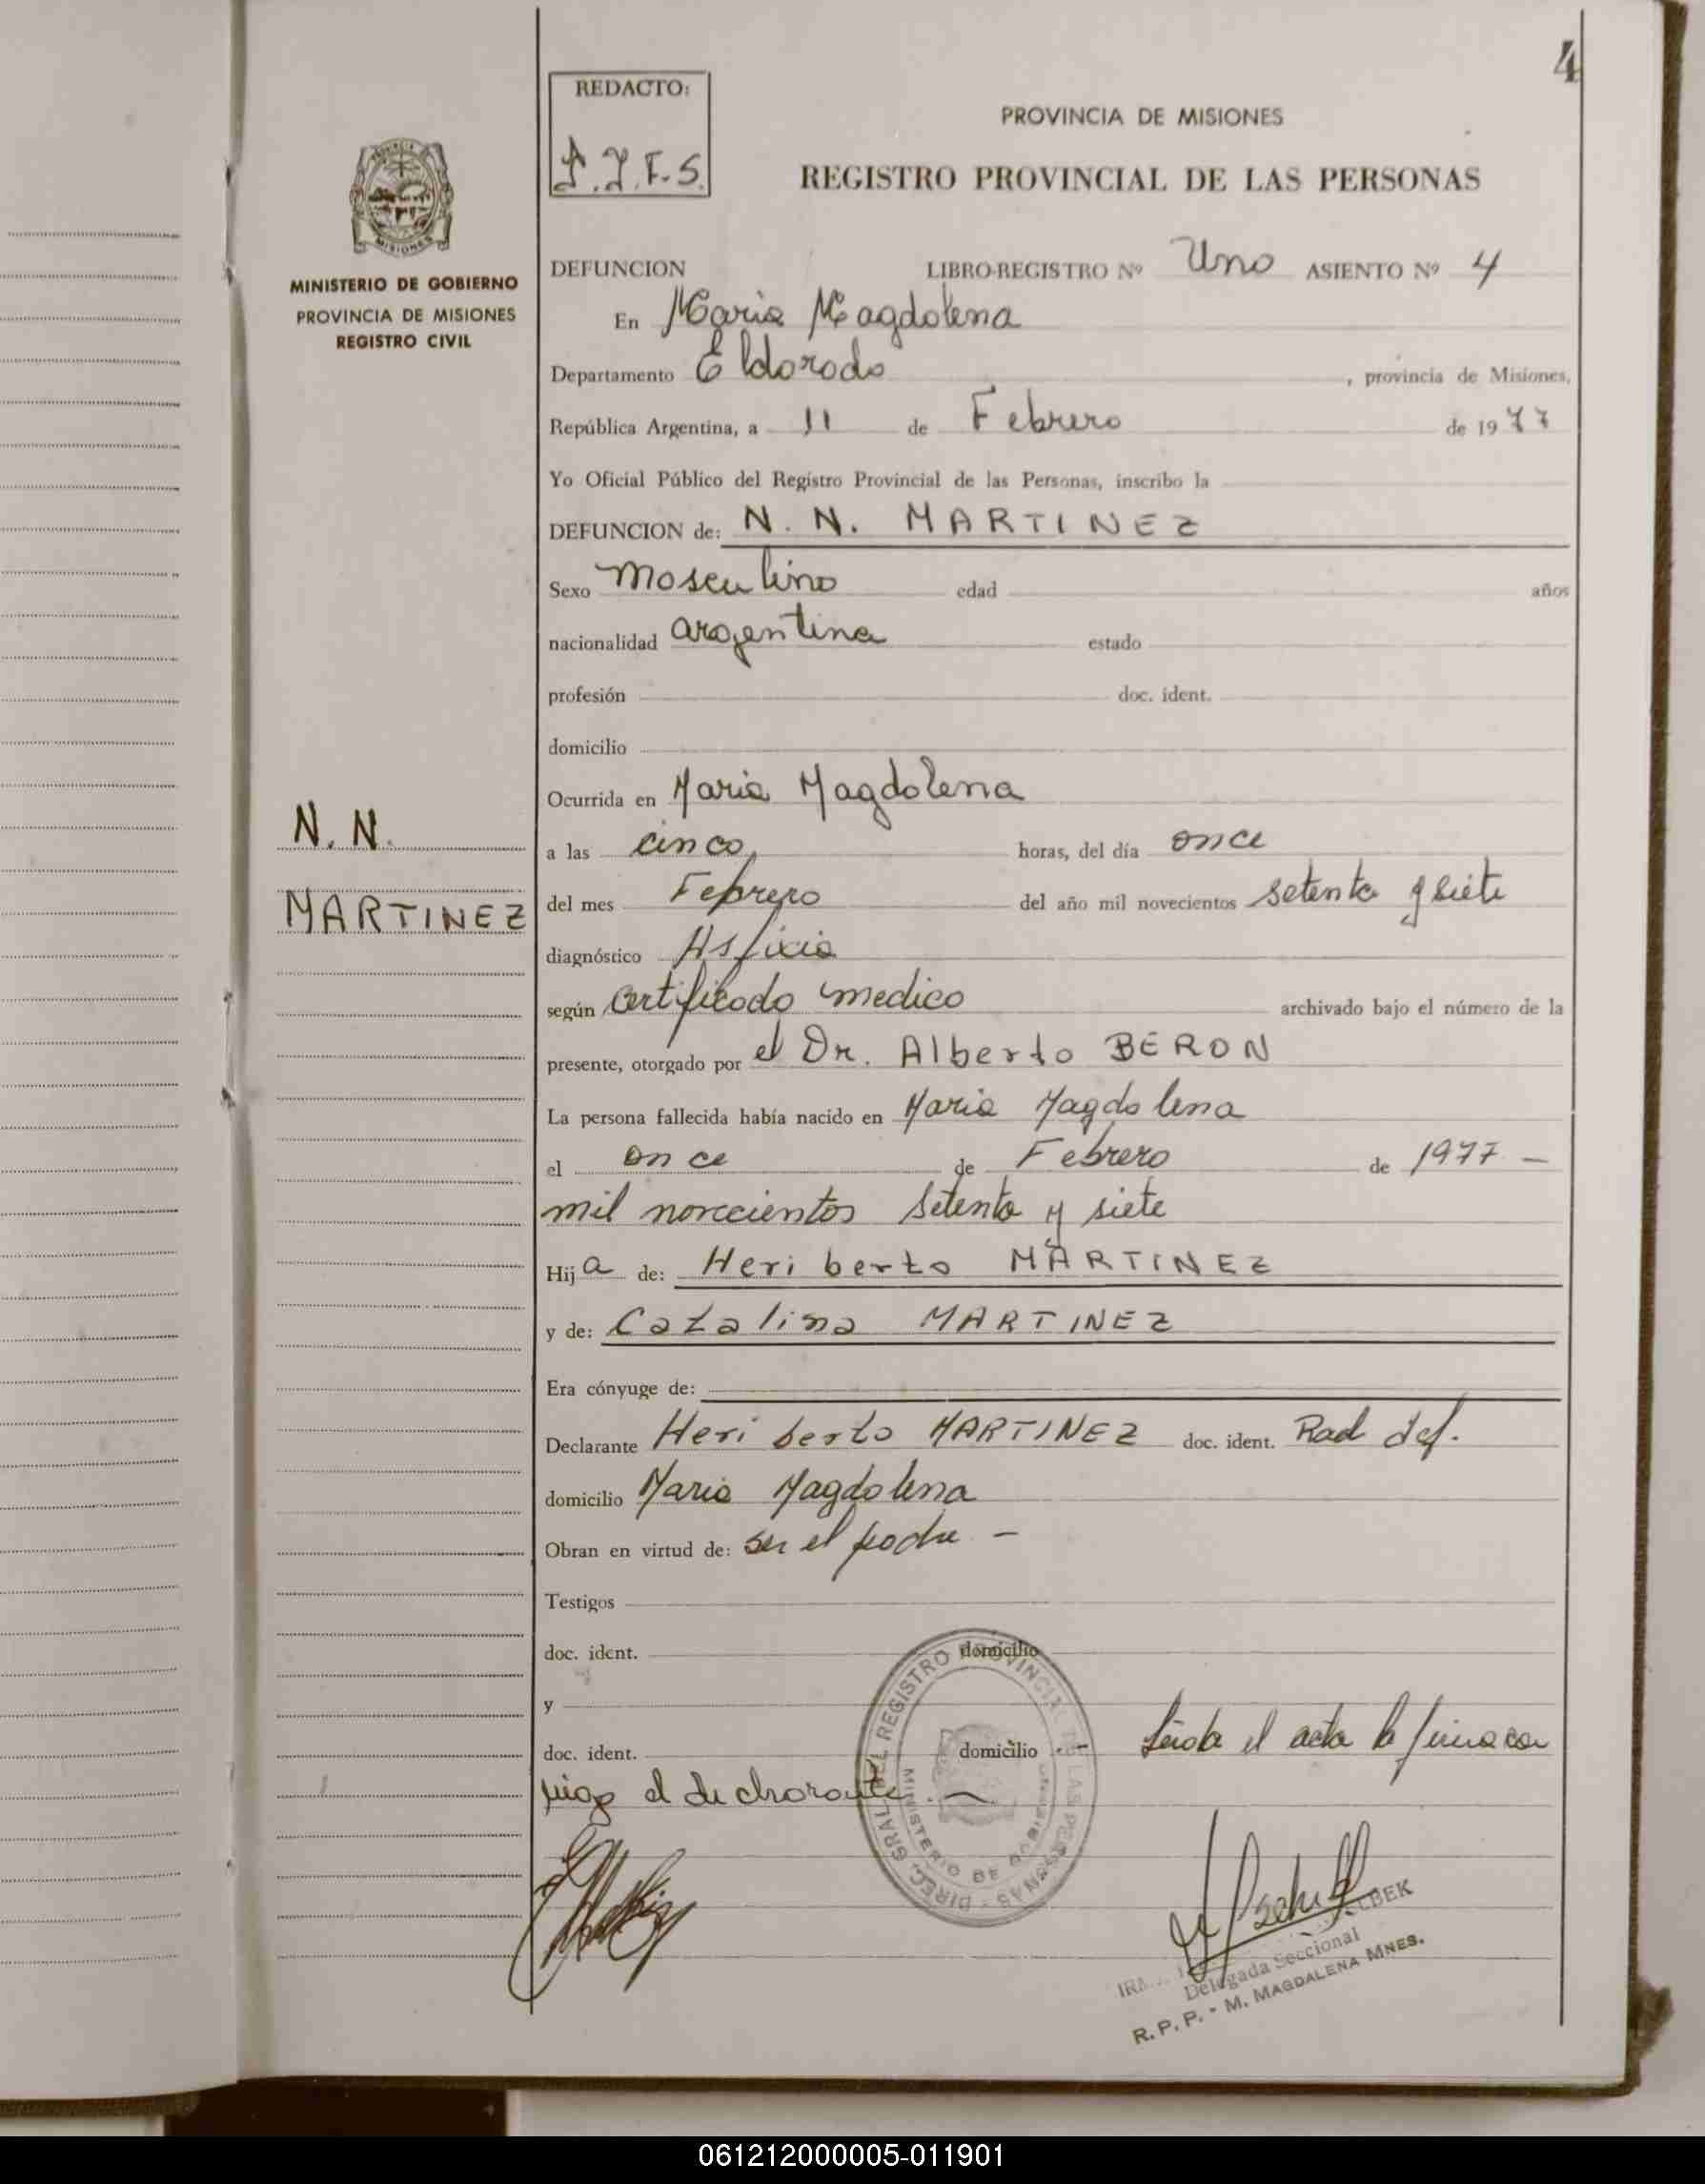 4
REDACTO:
PROVINCIA DE MISIONES
REGISTRO PROVINCIAL DE LAS PERSONAS
MINISTERIO DE GOBIERNO
PROVINCIA DE MISIONES
REGISTRO CIVIL
DEFUNCION LIBRO-REGISTRO Nº Uno ASIENTO Nº 4
En Maria Magdalena
Departamento Eldorado, provincia de Misiones,
República Argentina, a 11 de Febrero de 1977
Yo Oficial Público del Registro Provincial de las Personas, inscribo la
DEFUNCION de: N. N. MARTINEZ
Sexo Masculino edad años
nacionalidad argentina estado
profesión doc. ident.
domicilio
Ocurrida en Maria Magdalena
N. N.
a las cinco, horas, del día once
MARTINEZ
del mes Febrero del año mil novecientos setenta y siete
diagnóstico Asfixia
según Certificado medico archivado bajo el número de la
presente, otorgado por el Dr. Alberto BERON
La persona fallecida había nacido en Maria Magdalena
el once de Febrero de 1977 -
mil novecientos setenta y siete
Hija de: Heriberto MARTINEZ
y de: Catalina MARTINEZ
Era cónyuge de:
Declarante Heriberto MARTINEZ doc. ident. Rad def.
domicilio Maria Magdalena
Obran en virtud de: ser el padre -
Testigos
doc. ident. domicilio
y
doc. ident. domicilio Leida el acta la firma con
migo el declarante. -
DIREC. GRAL. DEL REGISTRO PROVINCIAL DE LAS PERSONAS
MINISTERIO DE GOBIERNO
Delegada Seccional
R. P. P. - M. MAGDALENA MNES.
061212000005-011901